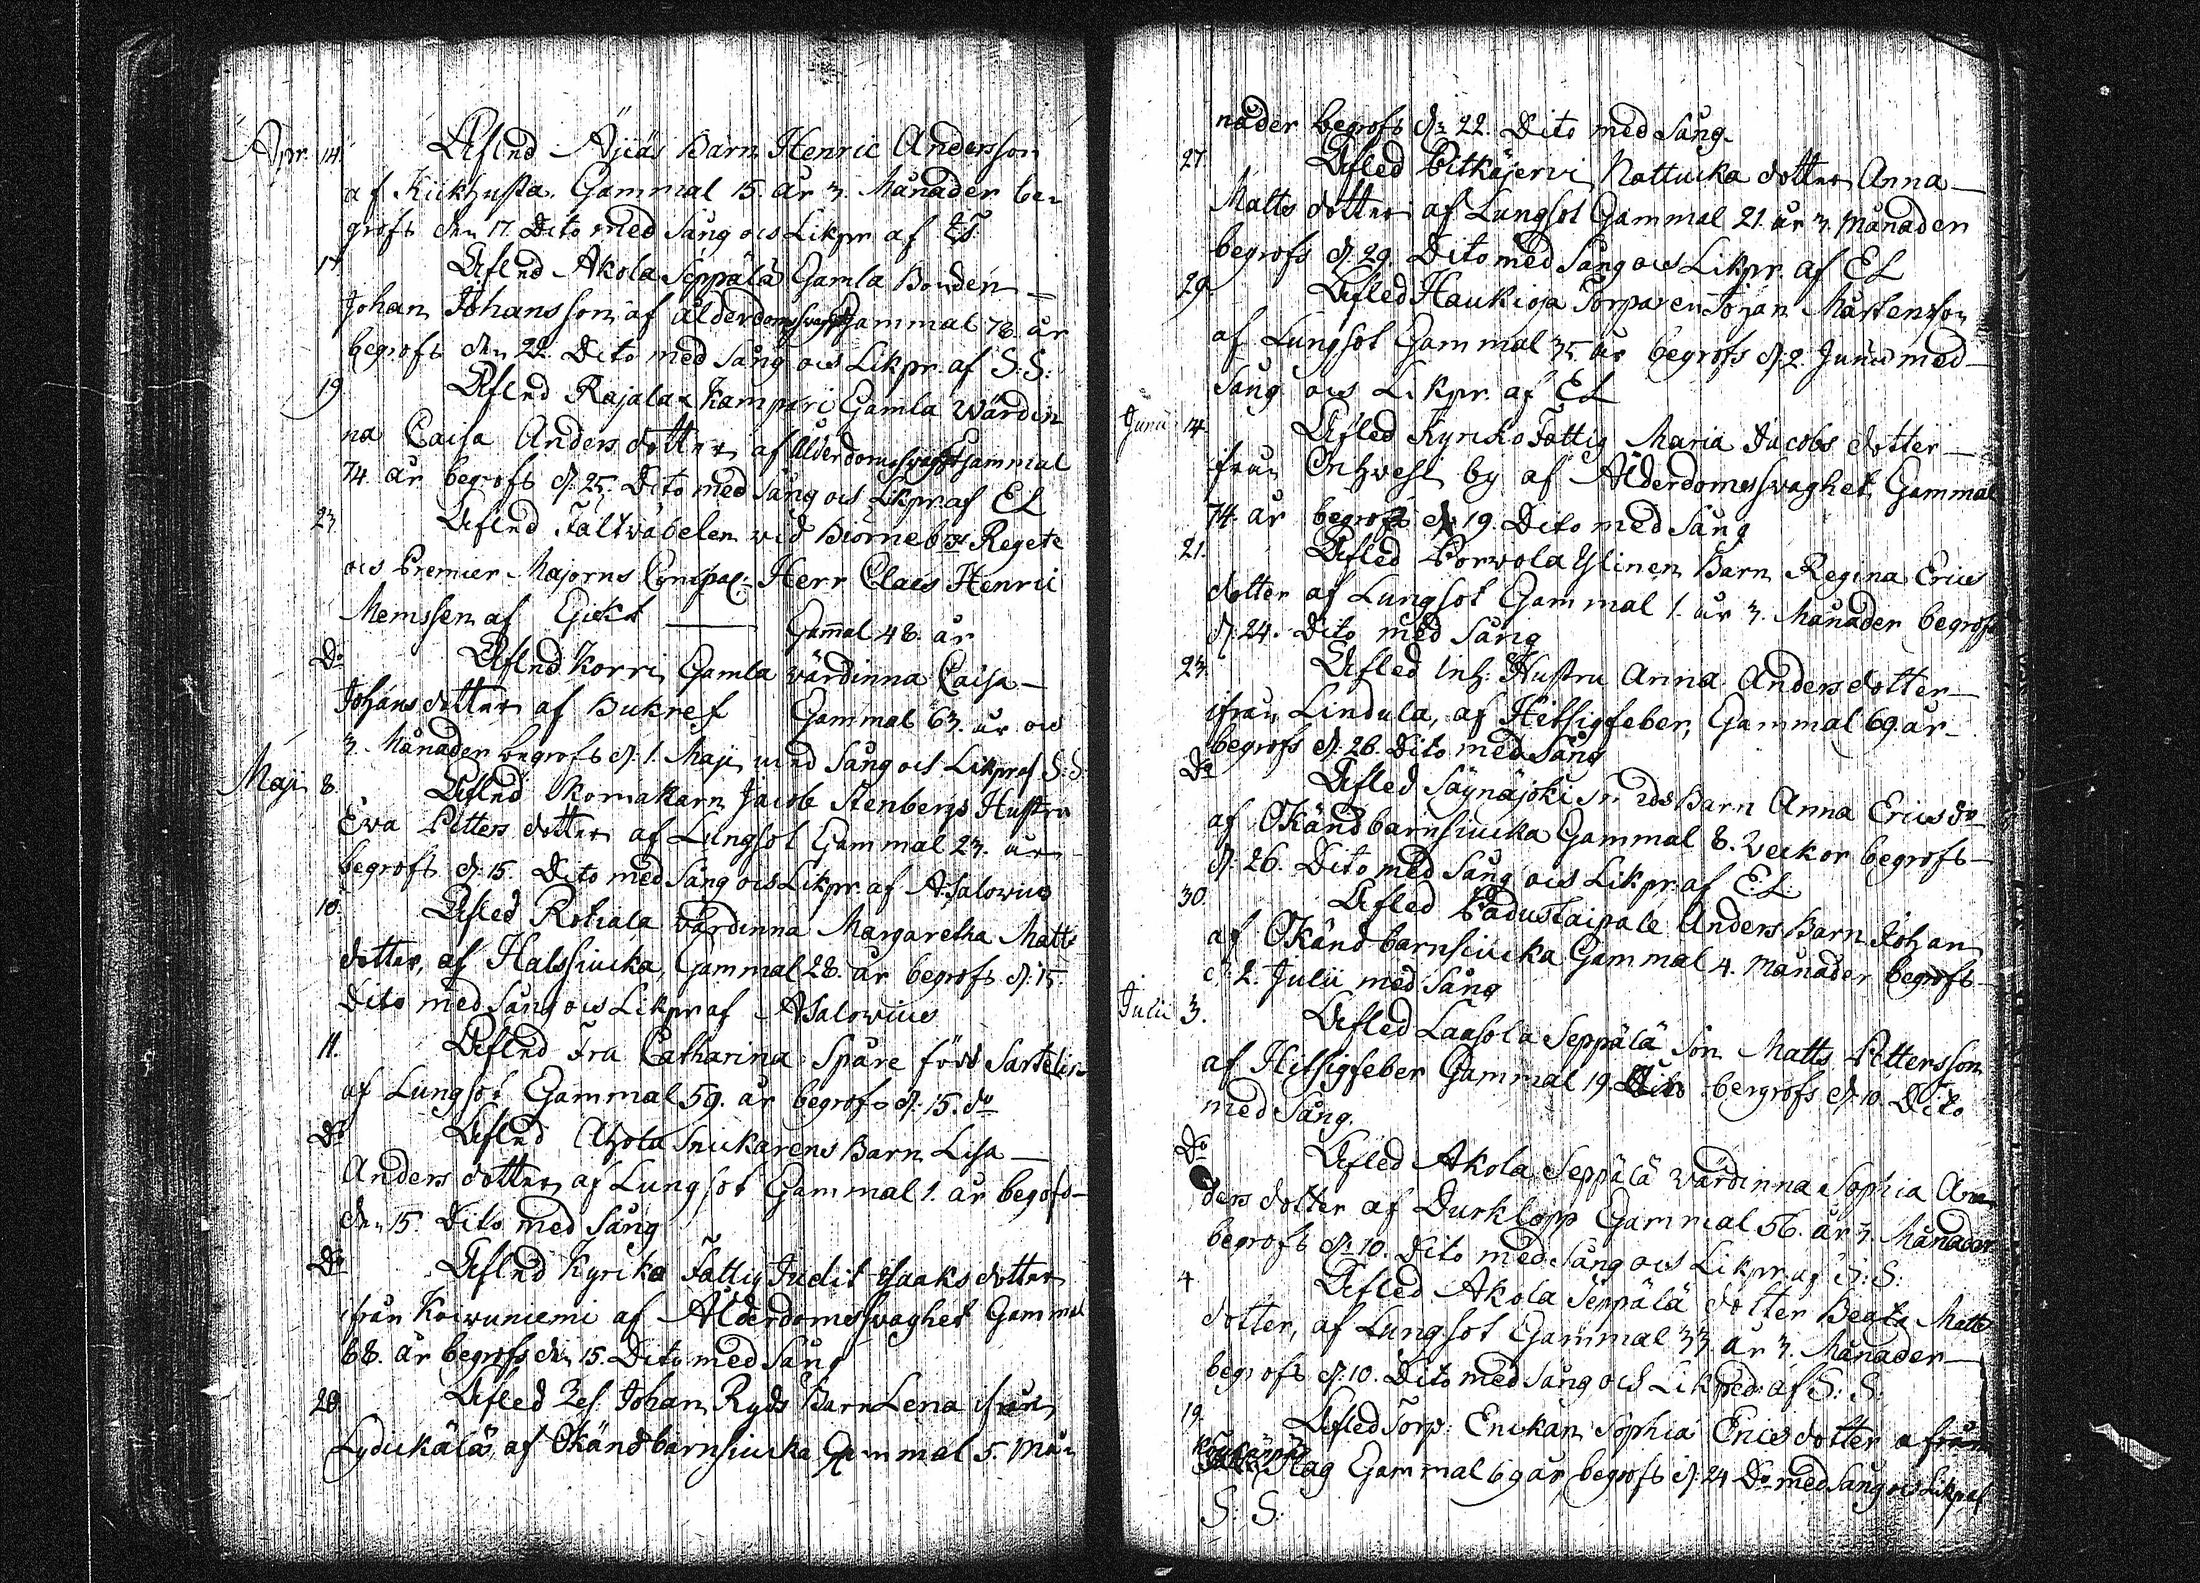 Apr. 14. Aflned Äjiäs Barn Henric Andersson
af Kikhusta Gammal 15. år 3. Månader be-
grofs den 17. Dito med Sång ocs Likpr. af
17. Aflned Akola Seppälä Gamla Bonden
Johan Johansson af ålderdomssvaghet Gammal 78. år
begrofs den 22. Dito med Sång ocs Likpr. af S. S.
19 Aflned Rajala Kampari Gamla Wärdin
na Caisa Anders dotter af ålderdomssvaghet Gammal
74 år begrofs d. 25. Dito med Sång ocs Likpr. af EL
23 Aflned Fältwäbelen wid Biörneb Regete
ocs Premier Majorns Compae: Herr Claes Henric
Memssen af Gikt Gamal 48. år
Do Aflned Korri Gamla wärdinna Caisa
Johans dotter af Bukref Gammal 63. år ocs
3. Månader begrofs d. 1. Maji med Sång ocs Likpr af S. S.
Maji 8. Aflned Skomakarn Jacob Stenbergs Hustru
Ewa Petters dotter af Lungsot Gammal 23. år
begrofs d. 15. Dito med Sång ocs Likpr. af A. Salowius
10. Afled Rohiala wärdinna Margaretha Matts
dotter, af Halssiucka, Gammal 28. år begrofs d. 15.
Dito med Sång ocs Likpr af A Salowius
11. Aflned Fru Catharina Spåre född Sartelis
af Lungsot Gammal 59. år begrofs d. 15. do
Do Aflned Ahola Snickarens Barn Lisa
Anders dotter af Lungsot Gammal 1. år begofs
den 15. Dito med Sång
Do Aflned Kyriko Fattig Judit Isaaks dotter
ifrån Koiwuniemi af Ålderdomssvaghet Gammal
68. år begrofs den 15. Dito med Sång
20. Afled Johan Ryds Barn Lena ifrån
Lydickälä, af Okänd barnsiucka Gammal 5. Må-
nader begrofs d. 22. Dito med Sång
27. Afled Pitkäjerwi Nattucka dotter Anna
Matts dotter af Lungsot Gammal 21. år 3. Månader
begrofs d. 29. Dito med Sång ocs Likpr. af EL
29. Afled Haukioja Torparen Johan Mårtensson
af Lungsot Gammal 35. år begrofs d. 2. Junii med
Sång ocs Likpr. af EL
Junii 14. Afled Kyriko Fattig Maria Jacobs dotter
ifrån by af Ålderdomssvaghet, Gammal
74. år begrofs d. 19. Dito med Sång
21. Afled Porwola Ylinen Barn Regina Erics
dotter af Lungsot Gammal 1. år 3. Månader begrofs
d. 24. Dito med Sång
23. Afled Inh: Hustru Anna Anders dotter
ifrån Lindula, af Hetsigfeber, Gammal 69. år
begrofs d. 26. Dito med Sång
Do Afled Säynäjoki Barn Anna Ericsdo
af Okänd barnsiucka Gammal 8. Veckor begrofs
d. 26. Dito med Sång ocs Likpr. af E. L.
30. Afled Padustaipale Anders Barn Johan
af Okänd barnsiucka Gammal 4. månader begrofs
d. 2. Julii med Sång
Julii 3. Afled Laasola Seppälä Son Matts Pettersson
af Hetsigfeber Gammal 19. bergrofs d. 10. Dito
med Sång.
Do Afled Akola Seppälä wärdinna Sophia An
ders dotter af Durklopp Gammal 56. år 3. Månader
begrofs d. 10. Dito med Sång ocs Likpr af S: S:
4 Afled Akola Seppälä dotter Beata Matts
dotter, af Lungsot Gammal 33 år 3. Månader
begrofs d. 10. Dito med Sång och Likpred: af S: S:
19. Afled Torp: Enckan Sophia Erics dotter ifrån
af Slag Gammal 69 år begrofs d. 24 Do med Sång ocs Likpr af
S. S.